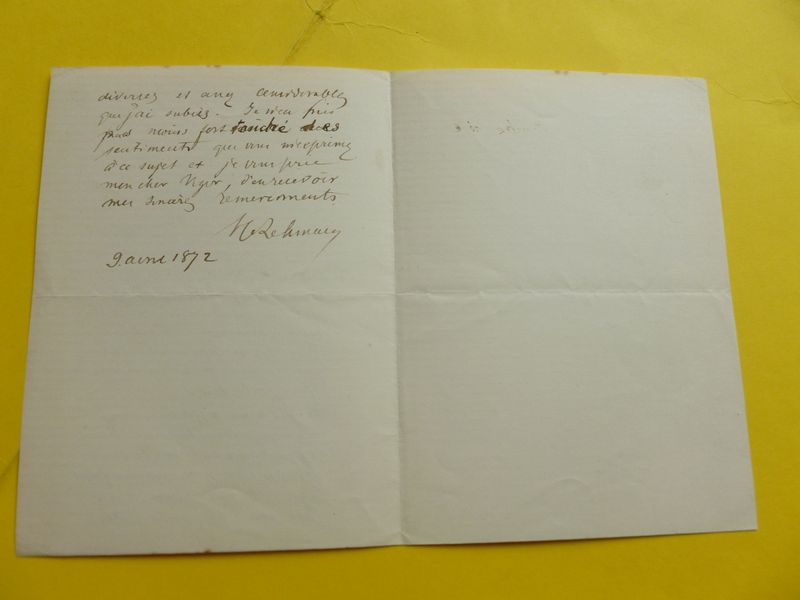 diverses et aux considérables
que j'ai subies. Je n'en suis
pas moins fort touché des
sentiments que vous m'exprimez
à ce sujet et je vous prie
mon cher Vgor, d'en recevoir
mes sincères remerciements
9 avril 1872